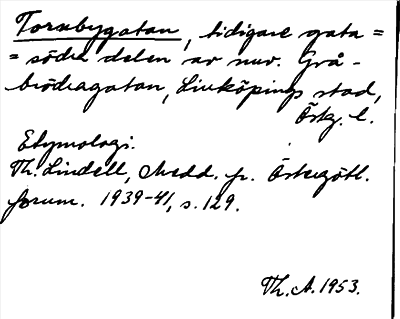 Tornbygatan, tidigare gata =
= södra delen av nuv. Grå-
brödragatan, Linköpings stad,
Östg. l.
Etymologi.
Th. Lindell, Medd. fr. Östergötl.
forum. 1939-41, s. 129.
Th. A. 1953.